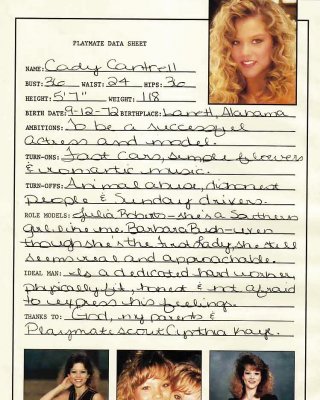 PLAYMATE DATA SHEET
NAME: Cady Cantrell
BUST: 36 WAIST: 24 HIPS: 36
HEIGHT: 5'7" WEIGHT: 118
BIRTH DATE: 9-12-72 BIRTHPLACE: Lanett, Alabama
AMBITIONS: To be a successful
actress and model.
TURN-ONS: Fast cars, simple flowers
& romantic music.
TURN-OFFS: Animal abuse, dishonest
people & Sunday drivers.
ROLE MODELS: Julia Roberts-she's a Southern
girl like me. Barbara Bush-even
though she's the first lady, she still
seems real and approachable.
IDEAL MAN: Is a dedicated hard worker,
physically fit, honest & not afraid
to express his feelings.
THANKS TO: God, my parents &
Playmate scout Cynthia Kaye.